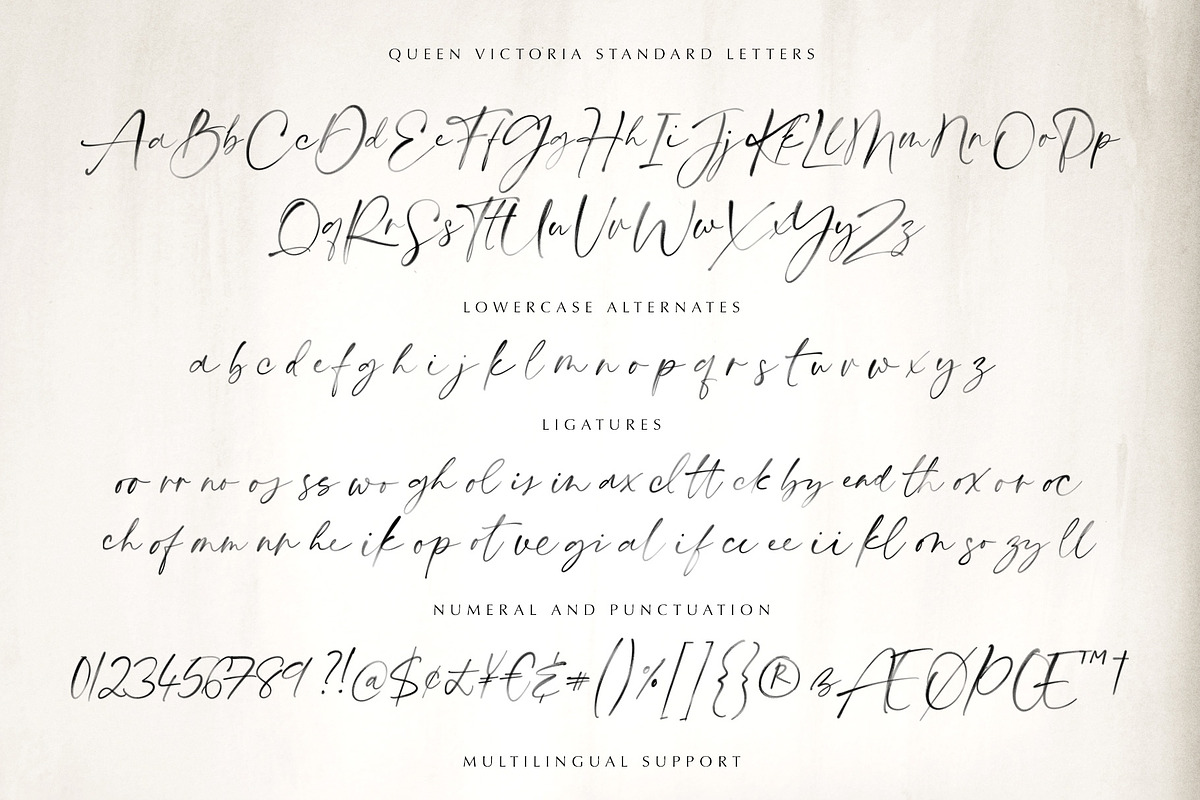 QUEEN VICTORIA STANDARD LETTERS
AaBbCcDdEeFfGgHhIiJjKkLlMmNnOoPp
QqRrSsTtUuVvWwXxYyZz
LOWERCASE ALTERNATES
a b c d e f g h i j k l m n o p q r s t u v w x y z
LIGATURES
oo rr no os ss wo gh ol is in ax cl tt ck by end th ox or oc
ch of mm nn he ik op ot ve gi al if cc ee ii kl on so zy ll
NUMERAL AND PUNCTUATION
0123456789?!@$¢£¥€&#()%[]{}®ßÆØÞŒ™†
MULTILINGUAL SUPPORT